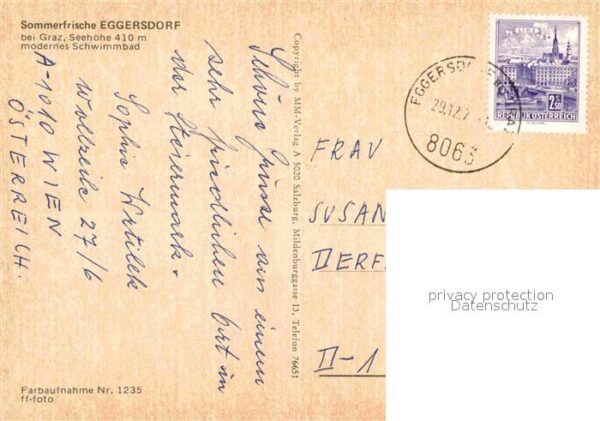 Sommerfrische EGGERSDORF
bei Graz, Seehöhe 410 m
modernes Schwimmbad
Schöne Grüsse aus einem
sehr friedlichen Ort in
der Steiermark.
Sophia
Wollzeile 27/6
A-1010 WIEN
ÖSTERREICH.
Copyright by MM-Verlag A 5020 Salzburg, Mildenburggasse 13, Telefon 76651
LINZ
2.50
REPUBLIK ÖSTERREICH
EGGERSDORF
29.12.7
8063
FRAU
SUSAN
II-1
privacy protection
Datenschutz
Farbaufnahme Nr. 1235
ff-foto